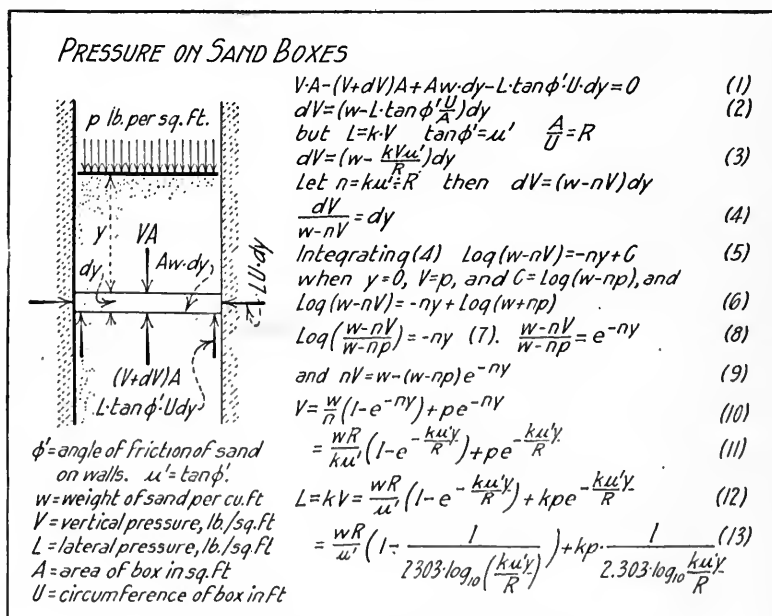 PRESSURE ON SAND BOXES
p lb. per sq. ft.
y
dy
VA
Aw·dy
LU·dy
(V+dV)A
L·tanφ'·Udy
φ'=angle of friction of sand
on walls. μ'=tanφ'.
w=weight of sand per cu.ft
V=vertical pressure, lb./sq.ft
L=lateral pressure, lb./sq.ft
A=area of box in sq.ft
U=circumference of box in ft
V·A-(V+dV)A+Aw·dy-L·tanφ'·U·dy=0 (1)
dV=(w-L·tanφ' U/A)dy (2)
but L=k·V tanφ'=μ' A/U=R
dV=(w-kVμ'/R)dy (3)
Let n=kμ'÷R then dV=(w-nV)dy
dV/w-nV=dy (4)
Integrating (4) Log(w-nV)=-ny+C (5)
when y=0, V=p, and C=Log(w-np), and
Log(w-nV)=-ny+Log(w+np) (6)
Log(w-nV/w-np)=-ny (7). w-nV/w-np=e^-ny (8)
and nV=w-(w-np)e^-ny (9)
V=w/n(1-e^-ny)+pe^-ny (10)
=wR/kμ'(1-e^-kμ'y/R)+pe^-kμ'y/R (11)
L=kV=wR/μ'(1-e^-kμ'y/R)+kpe^-kμ'y/R (12)
=wR/μ'(1-1/2303·log10(kμ'y/R))+kp·1/2.303·log10 kμ'y/R (13)